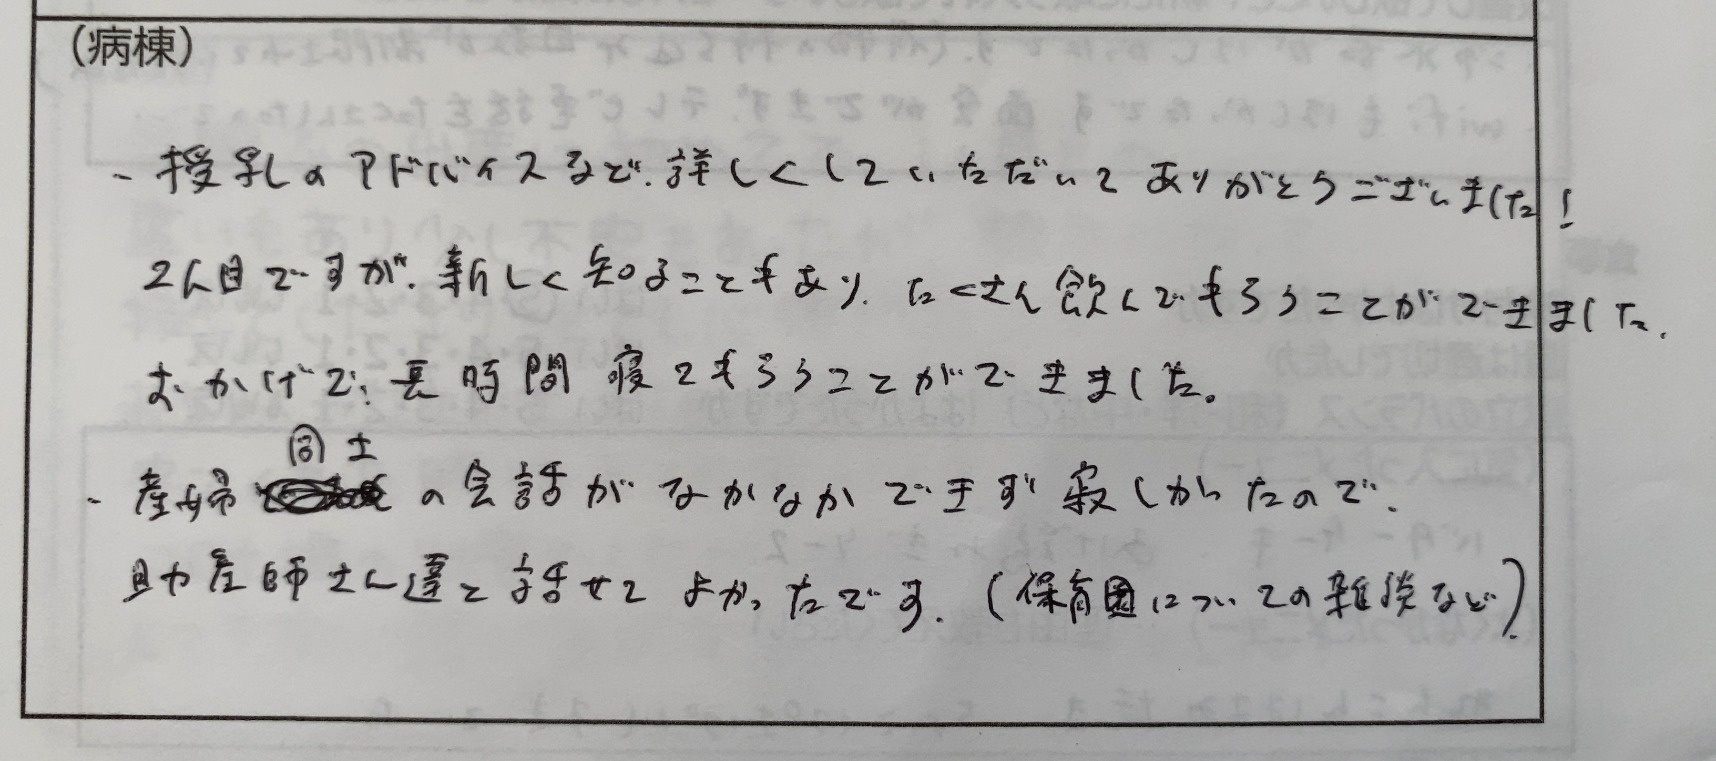 （病棟）
- 授乳のアドバイスなど、詳しくしていただいてありがとうございました！
2人目ですが、新しく知ることもあり、たくさん飲んでもらうことができました。
おかげで、長時間寝てもらうことができました。
- 産婦同士の会話がなかなかできず寂しかったので、
助産師さん達と話せてよかったです。（保育園についての雑談など）